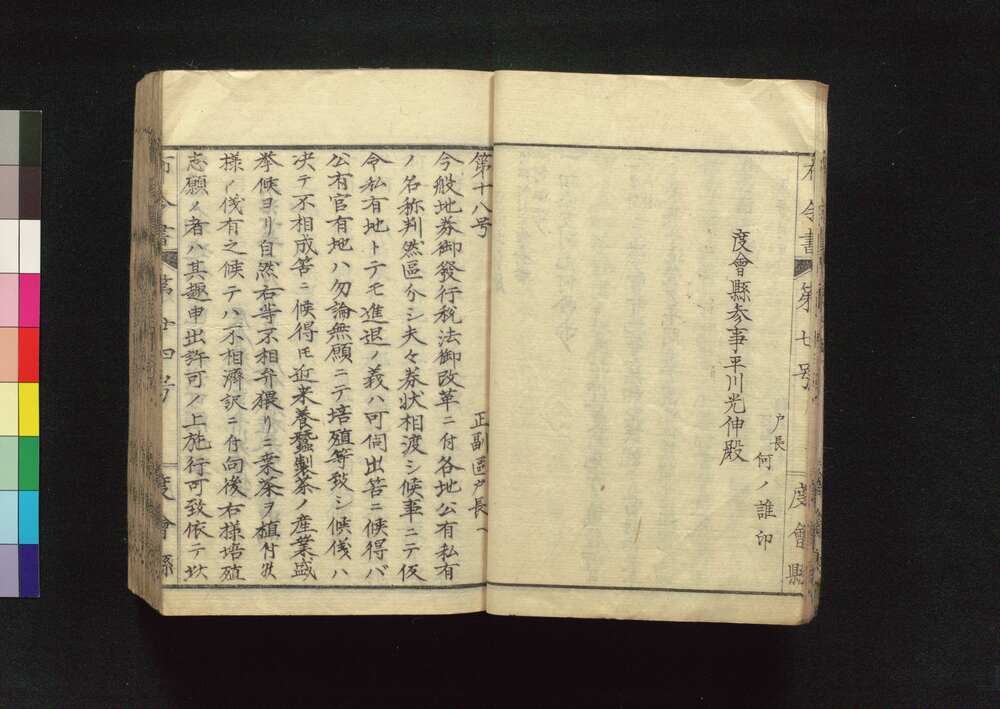 布令書 第七号 度會縣
戸長 何ノ誰印
度會縣参事平川光伸殿
第十八号
正副區戸長へ
今般地券御發行税法御改革ニ付各地公有私有
ノ名称判然區分シ夫々券状相渡シ候事ニテ仮
令私有地トテモ進退ノ義ハ可伺出筈ニ候得バ
公有官有地ハ勿論無願ニテ培殖等致シ候儀ハ
决テ不相成筈ニ候得𪜈近来養蚕製茶ノ産業盛
挙候ヨリ自然右等不相弁猥リニ桒茶ヲ植付候
様ノ儀有之候テハ不相濟訳ニ付向後右様培殖
志願ノ者ハ其趣申出許可ノ上施行可致依テ此
布令書 第廿四号 度會縣